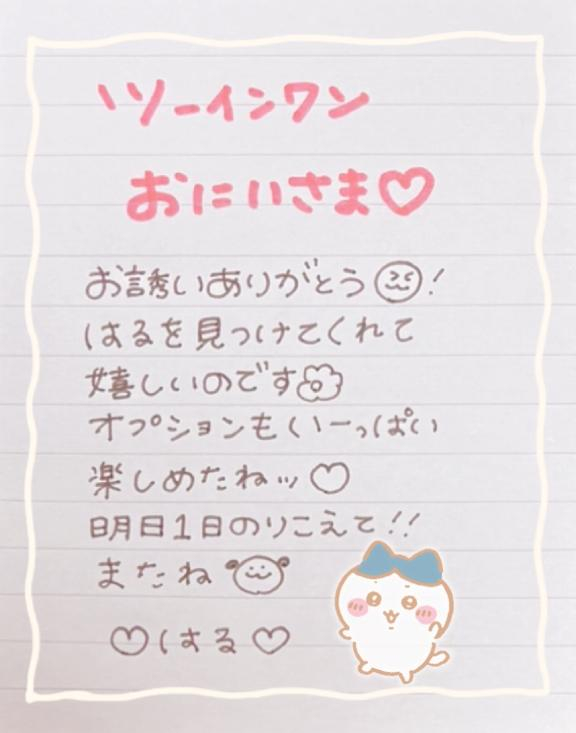 ツーインワン
おにいさま♡
お誘いありがとう!
はるを見つけてくれて
嬉しいのです
オプションもいーっぱい
楽しめたねッ♡
明日1日のりこえて!!
またね
♡はる♡